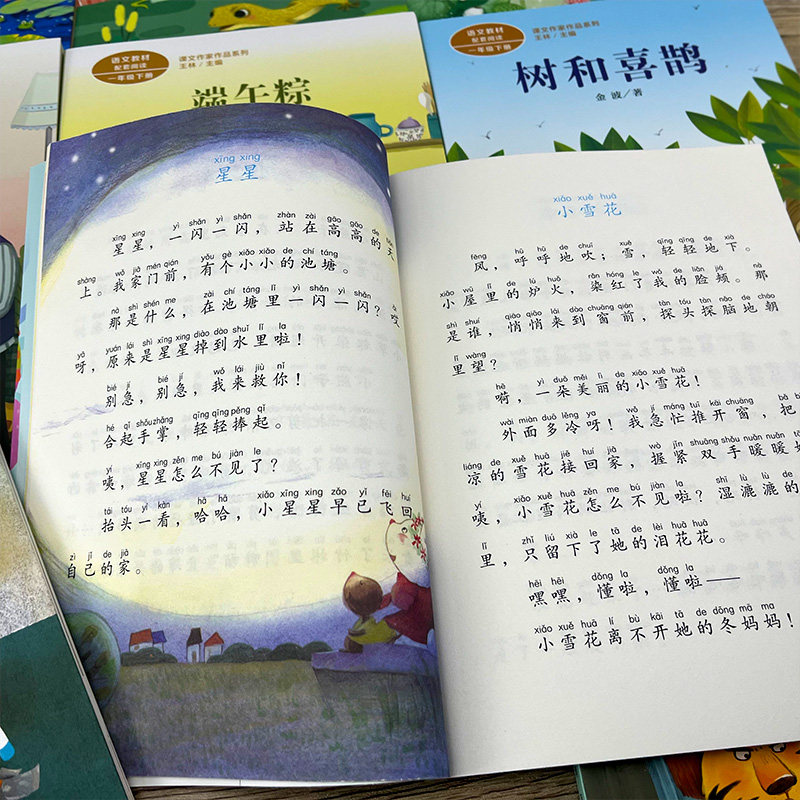 语文教材
配套阅读
一年级下册
课文作家作品系列
王林／主编
端午粽
语文教材
配套阅读
一年级下册
课文作家作品系列
王林／主编
树和喜鹊
金波／著
xīng xing
星星
xīng xing yì shǎn yì shǎn zhàn zài gāo gāo de
星星，一闪一闪，站在高高的天
shàng wǒ jiā mén qián yǒu gè xiǎo xiǎo de chí táng
上。我家门前，有个小小的池塘。
nà shì shén me zài chí táng lǐ yì shǎn yì shǎn
那是什么，在池塘里一闪一闪？哎
yā yuán lái shì xīng xing diào dào shuǐ lǐ la
呀，原来是星星掉到水里啦！
bié jí bié jí wǒ lái jiù nǐ
别急，别急，我来救你！
hé qǐ shǒu zhǎng qīng qīng pěng qǐ
合起手掌，轻轻捧起。
yí xīng xing zěn me bú jiàn le
咦，星星怎么不见了？
tái tóu yí kàn hā hā xiǎo xīng xing zǎo yǐ fēi huí
抬头一看，哈哈，小星星早已飞回
zì jǐ de jiā
自己的家。
xiǎo xuě huā
小雪花
fēng hū hū de chuī xuě qīng qīng de xià
风，呼呼地吹；雪，轻轻地下。
xiǎo wū lǐ de lú huǒ rǎn hóng le wǒ de liǎn jiá nà
小屋里的炉火，染红了我的脸颊。那
shì shuí qiāo qiāo lái dào chuāng qián tàn tóu tàn nǎo de cháo
是谁，悄悄来到窗前，探头探脑地朝
lǐ wàng
里望？
hē yì duǒ měi lì de xiǎo xuě huā
嗬，一朵美丽的小雪花！
wài miàn duō lěng ya wǒ jí máng tuī kāi chuāng bǎ
外面多冷呀！我急忙推开窗，把
liáng de xuě huā jiē huí jiā wò jǐn shuāng shǒu nuǎn nuǎn
凉的雪花接回家，握紧双手暖暖
yí xiǎo xuě huā zěn me bú jiàn la shī lù lù de
咦，小雪花怎么不见啦？湿漉漉的
lǐ zhǐ liú xià le tā de lèi huā huā
里，只留下了她的泪花花。
hēi hēi dǒng la dǒng la
嘿嘿，懂啦，懂啦——
xiǎo xuě huā lí bù kāi tā de dōng mā ma
小雪花离不开她的冬妈妈！